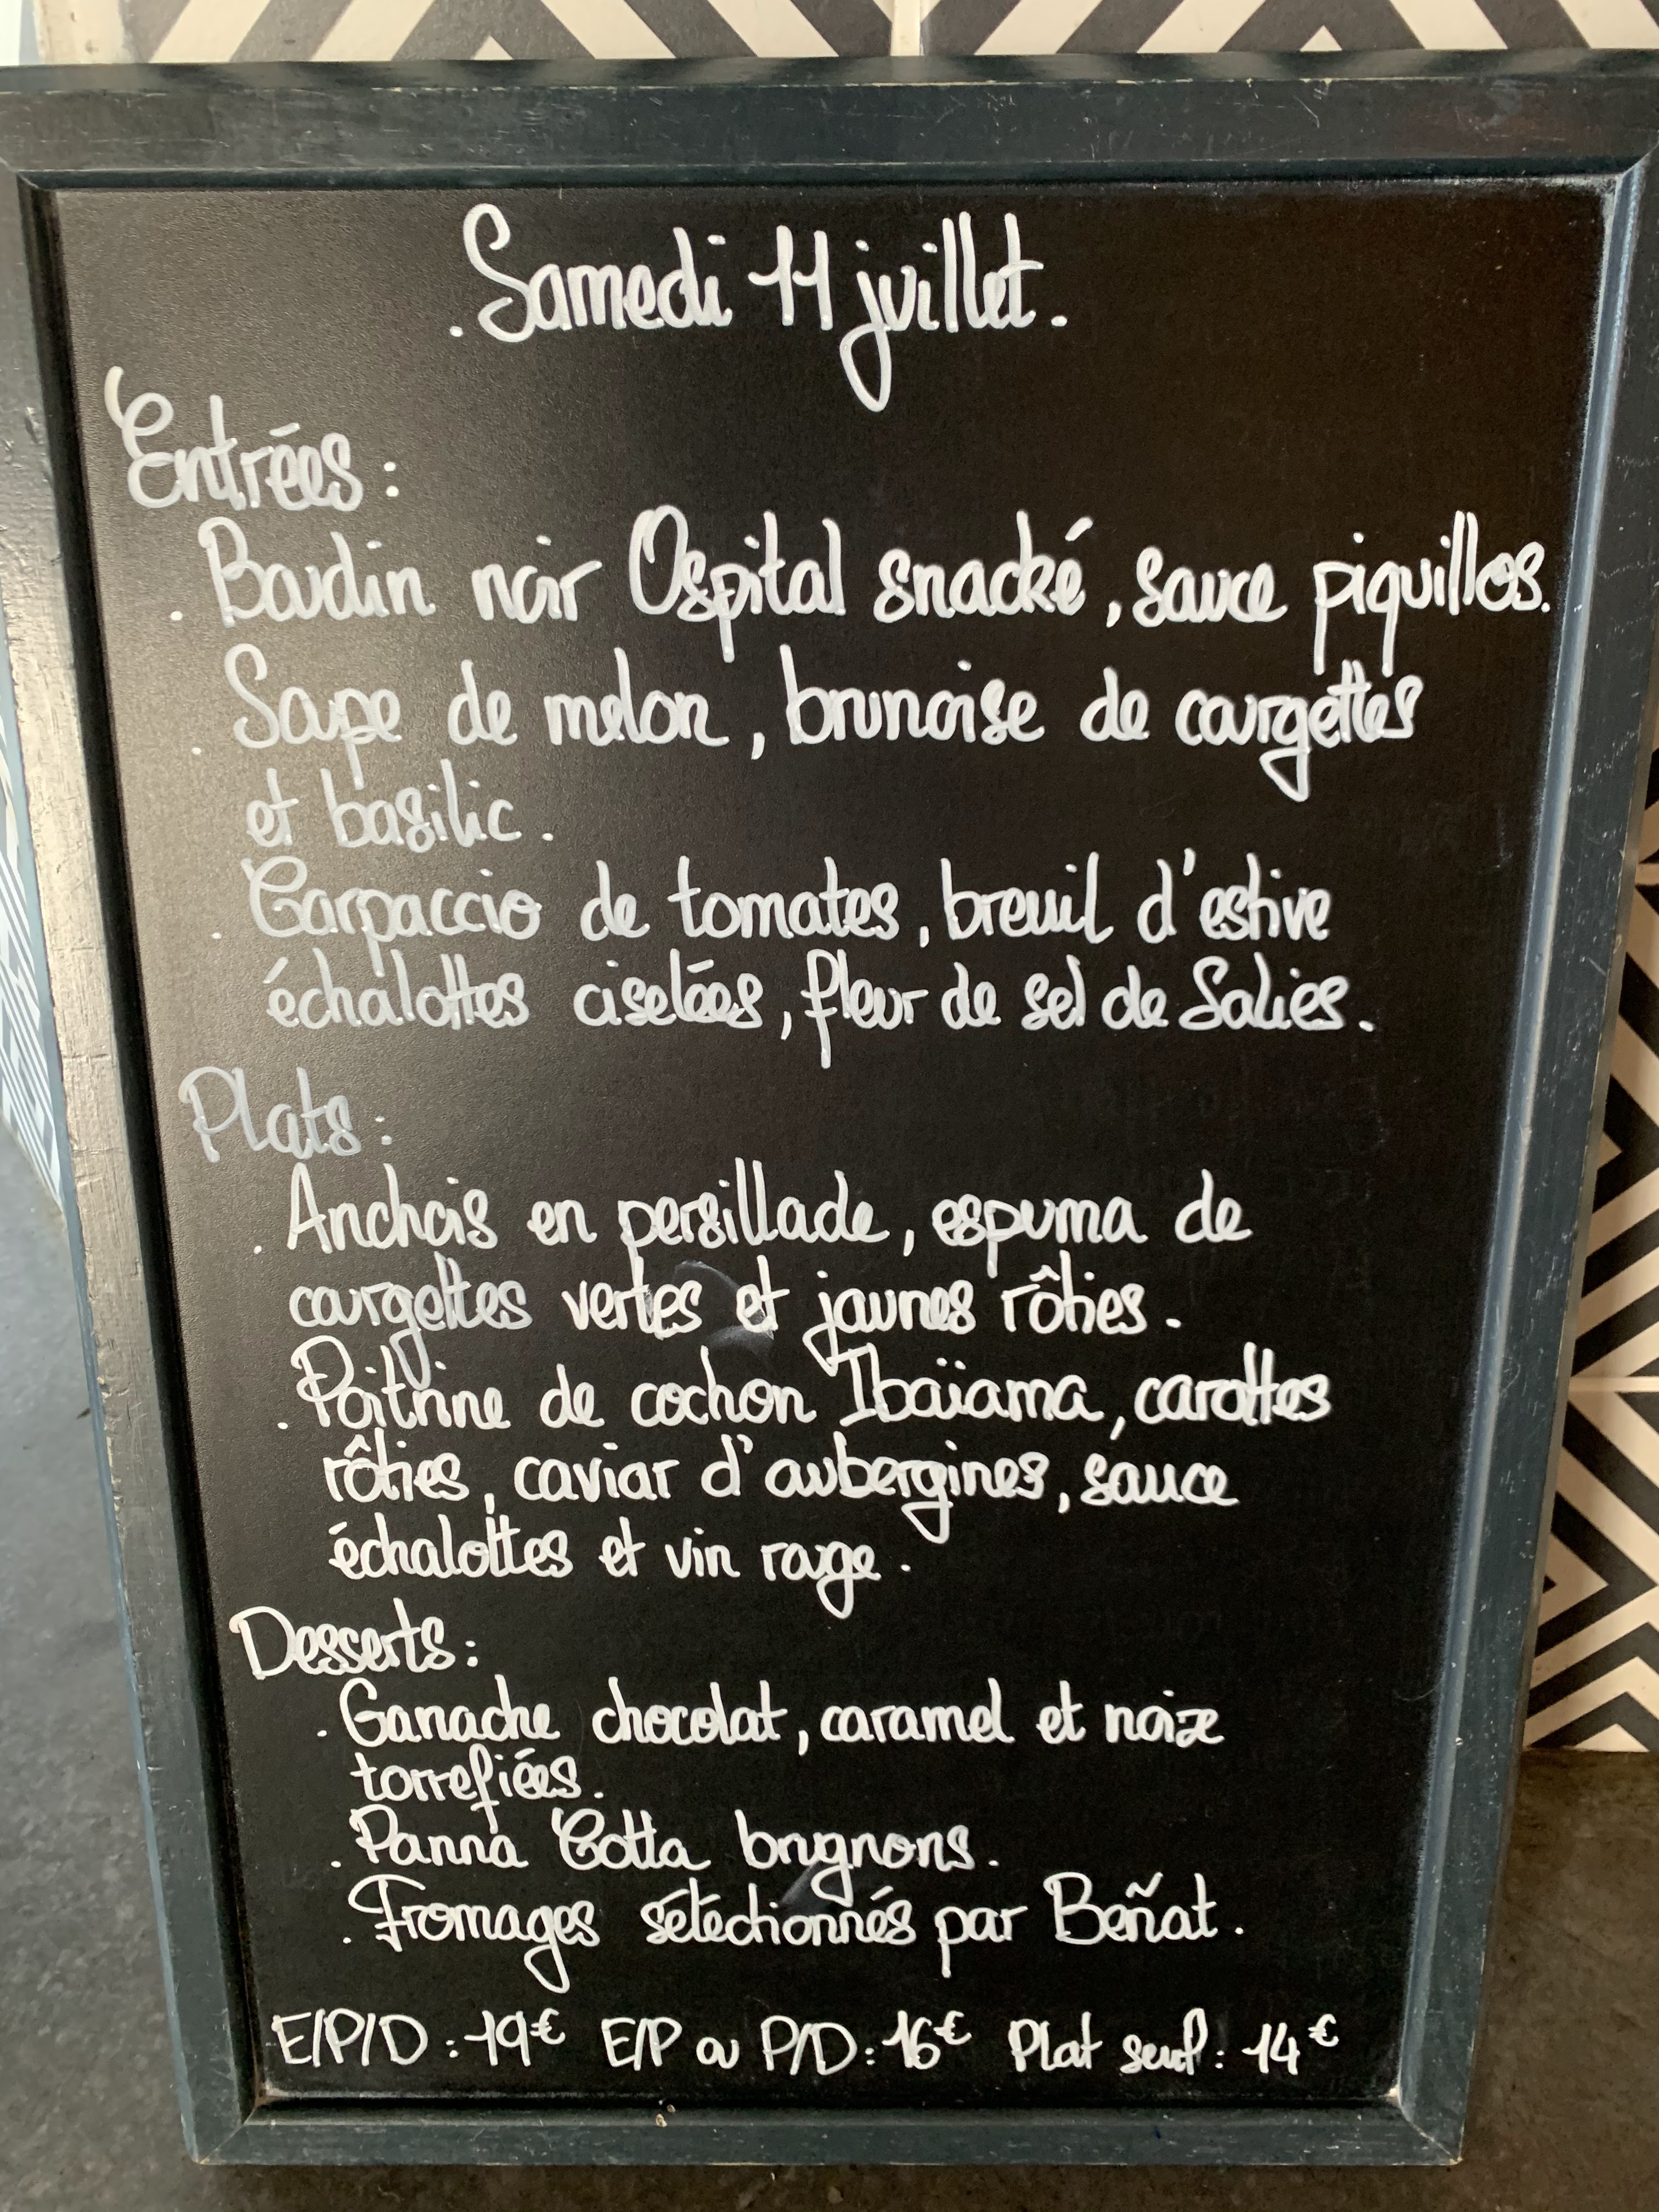 . Samedi 11 juillet.
Entrées :
. Boudin noir Ospital snacké, sauce piquillos.
. Soupe de melon, brunoise de courgettes
et basilic.
. Carpaccio de tomates, breuil d'estive
échalottes ciselées, fleur de sel de Salies.
Plats :
. Anchois en persillade, espuma de
courgettes vertes et jaunes rôties.
. Poitrine de cochon Ibaïama, carottes
rôties, caviar d'aubergines, sauce
échalottes et vin rouge.
Desserts :
. Ganache chocolat, caramel et noix
torrefiées.
. Panna Cotta brugnons.
. Fromages sélectionnés par Beñat.
E/P/D : 19€ E/P ou P/D : 16€ Plat seul : 14€